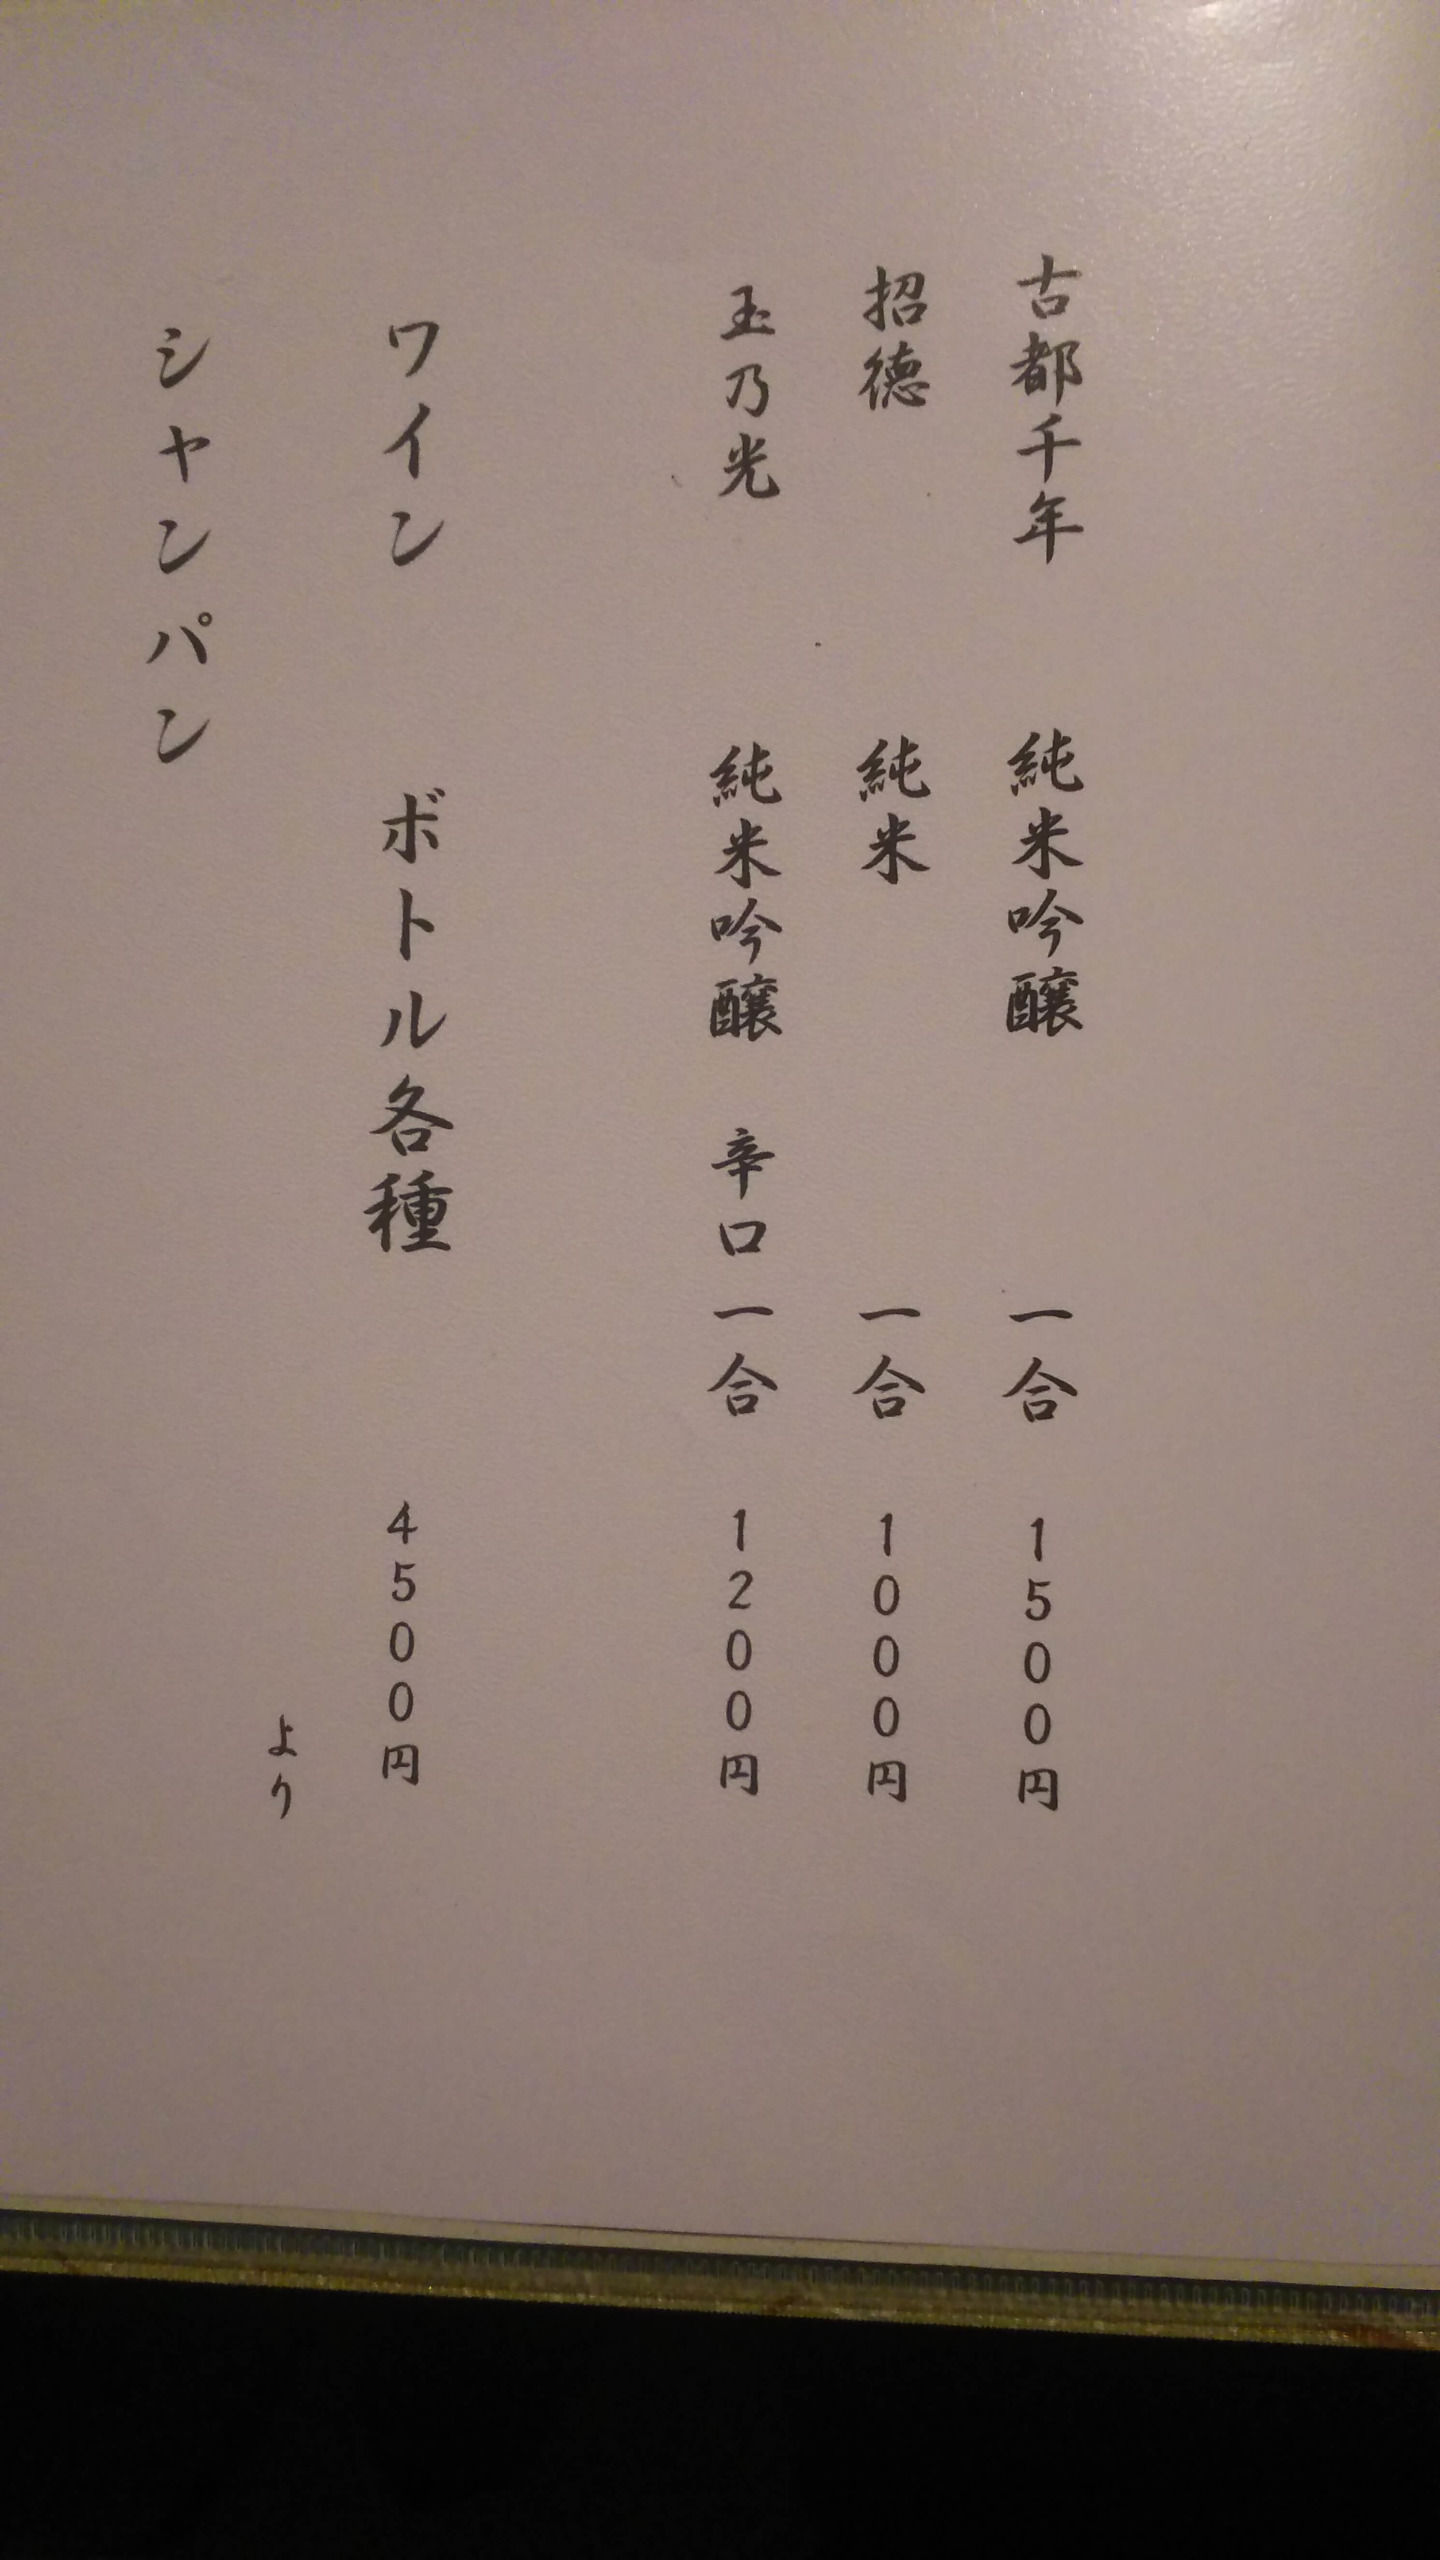 古都千年 純米吟醸 一合 1500円
招徳 純米 一合 1000円
玉乃光 純米吟醸 辛口 一合 1200円
ワイン ボトル各種 4500円
より
シャンパン